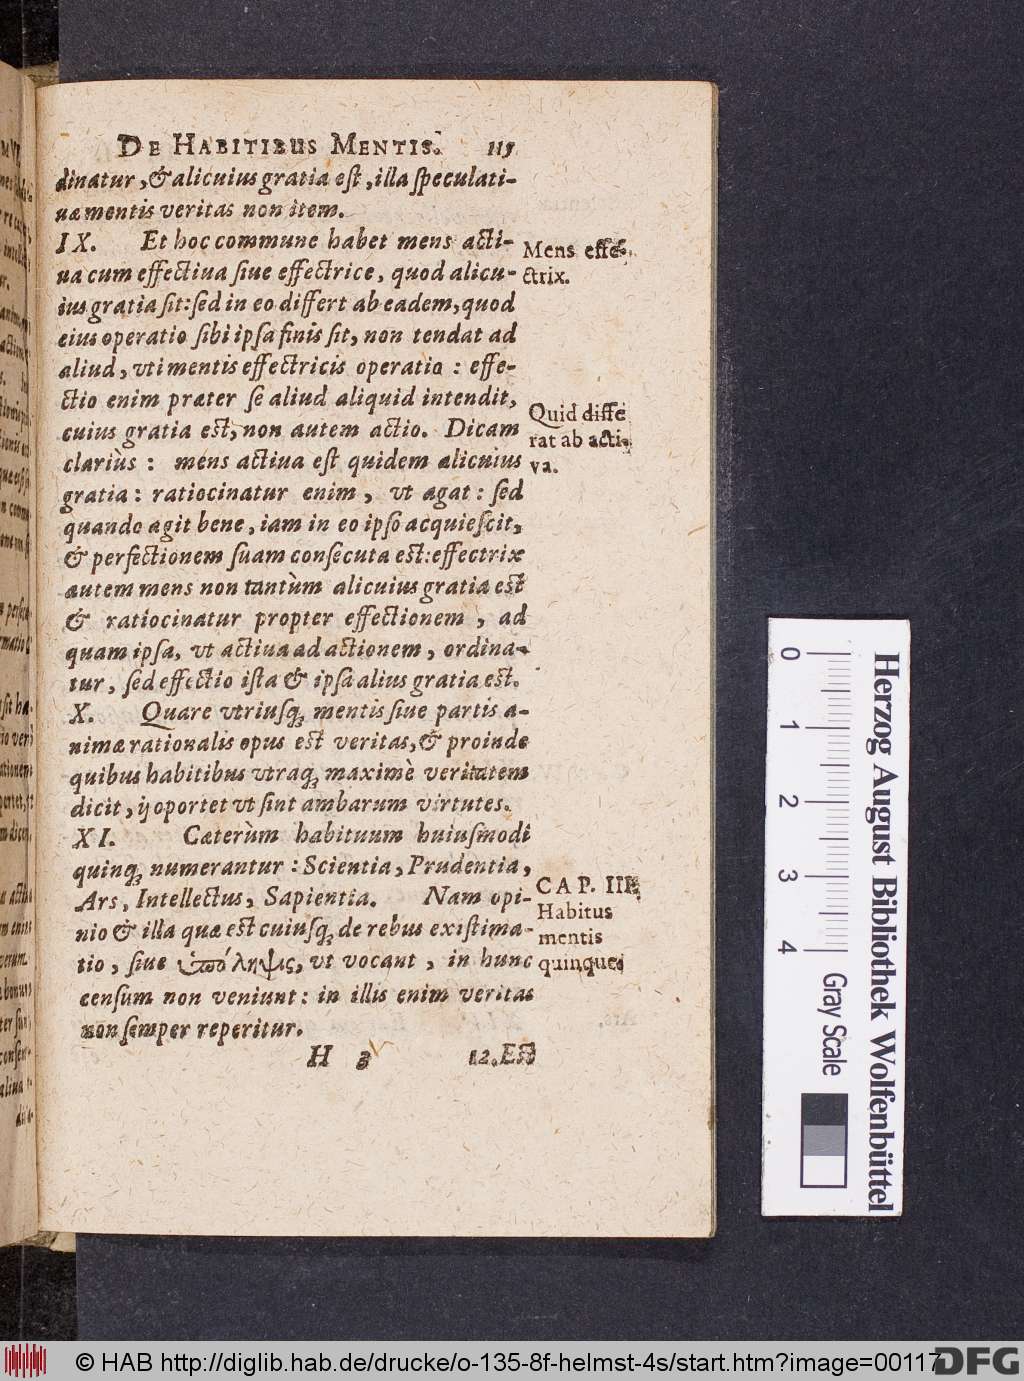 DE HABITIBUS MENTIS. 115
dinatur, & alicuius gratia est, illa speculati-
uæ mentis veritas non item.
IX. Et hoc commune habet mens acti-
ua cum effectiua siue effectrice, quod alicu-
ius gratia sit: sed in eo differt ab eadem, quod
eius operatio sibi ipsa finis sit, non tendat ad
aliud, vti mentis effectricis operatio: effe-
ctio enim præter se aliud aliquid intendit,
cuius gratia est, non autem actio. Dicam
clariùs: mens actiua est quidem alicuius
gratia: ratiocinatur enim, vt agat: sed
quando agit bene, iam in eo ipso acquiescit,
& perfectionem suam consecuta est: effectrix
autem mens non tantùm alicuius gratia est
& ratiocinatur propter effectionem, ad
quam ipsa, vt actiua ad actionem, ordina-
tur, sed effectio ista & ipsa alius gratia est.
X. Quare vtriusq; mentis siue partis a-
nimæ rationalis opus est veritas, & proinde
quibus habitibus vtraq; maximè veritatem
dicit, ij oportet vt sint ambarum virtutes.
XI. Cæterùm habituum huiusmodi
quinq; numerantur: Scientia, Prudentia,
Ars, Intellectus, Sapientia. Nam opi-
nio & illa quæ est cuiusq; de rebus existima-
tio, siue ὑπόληψις, vt vocant, in hunc
censum non veniunt: in illis enim veritas
non semper reperitur.
H 3 12. Est
Mens effe-
ctrix.
Quid diffe
rat ab acti-
va.
CAP. III.
Habitus
mentis
quinque
0 1 2 3 4
Gray Scale
Herzog August Bibliothek Wolfenbüttel
© HAB http://diglib.hab.de/drucke/o-135-8f-helmst-4s/start.htm?image=00117
DFG